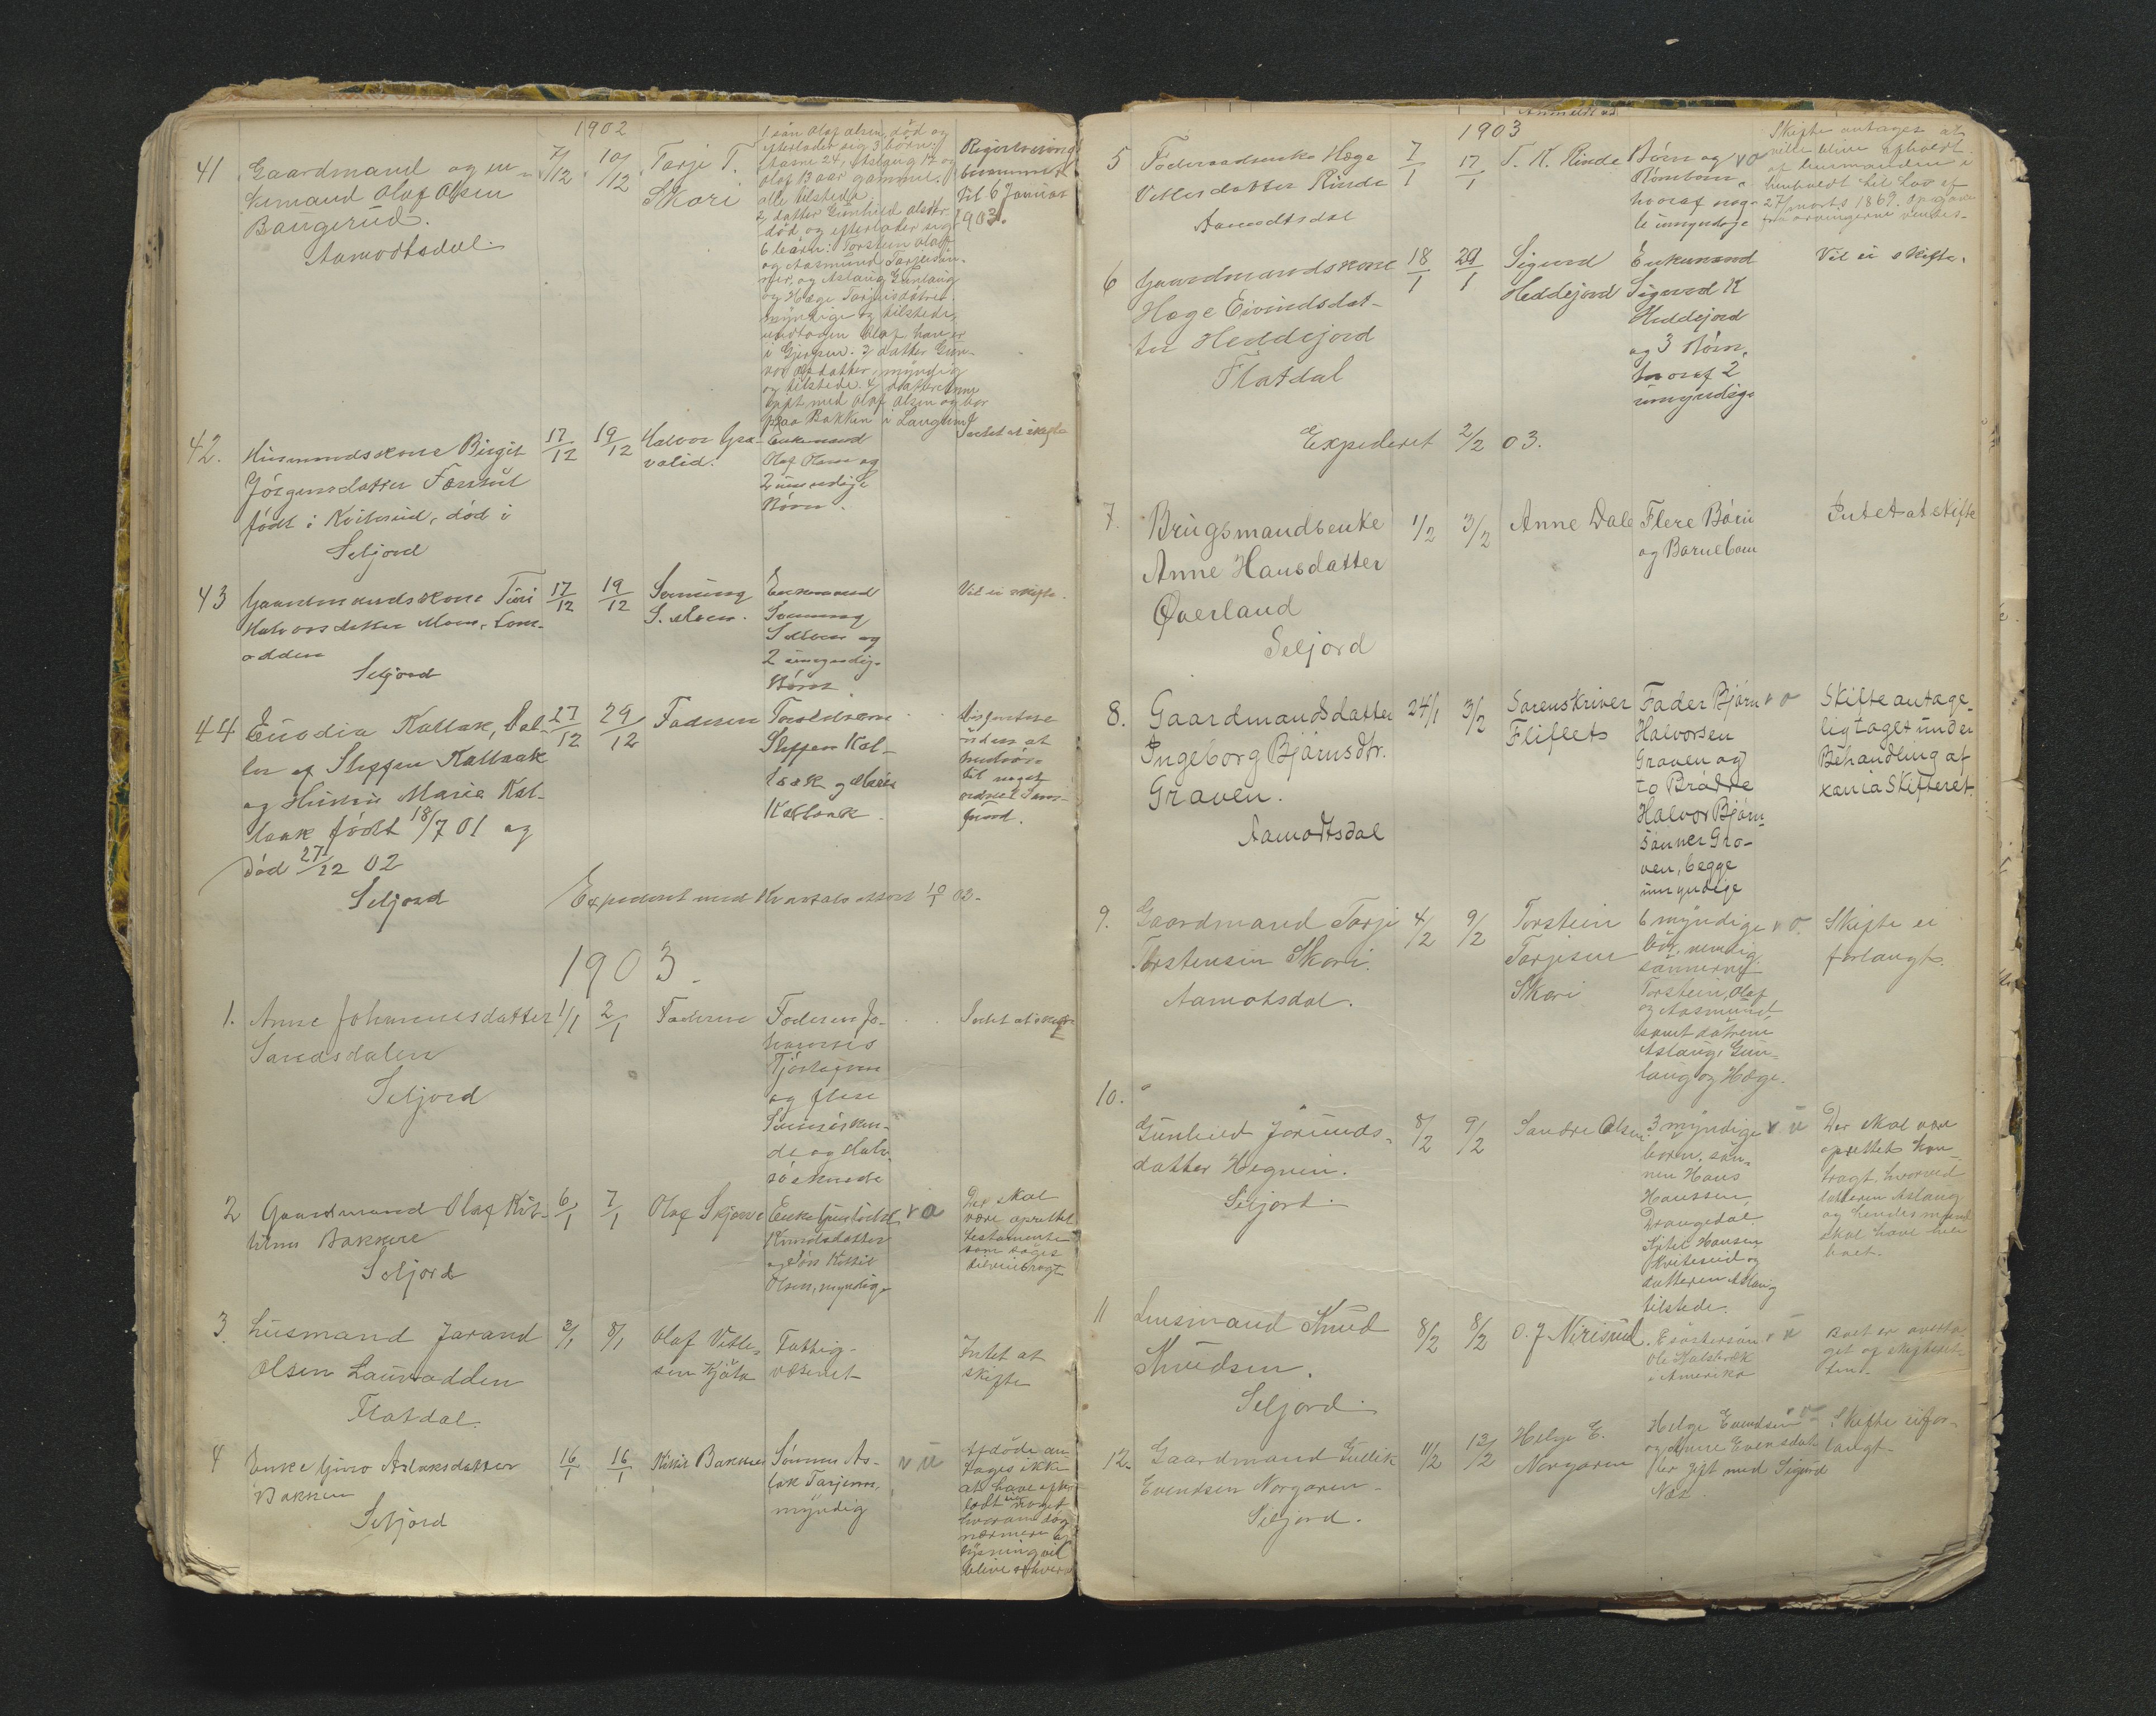 1902
41 Gaardmand og en-
kemand Olaf Olsen
Baugerud.
Aamodtsdal.
7/12
10/12
Tarje T.
Skori
1, sön Olaf Olsen, död og
efterlader sig 3 börn:
Aasne 24, Aslaug 17 og
Olaf 13 aar gamme.
alle tilstede.
2, datter Gunhild Olsdtr.
död, og efterlader sig
6 börn: Torstein Olaf
og Aasmund Tarjeisön-
ner, og Aslaug Gunlaug
og Hæge Tarjeisdötre.
myndige og tilstede,
undtagen Olaf han er
i Gjerpen. 3 datter Gun-
vor Olsdatter, myndig
og tilstede. 4 datter Anne
gift med Olaf Olsen og bor
paa Bakken i Langlim
Registrering
berammet
til 6 Januar
1903.
42. Husmandskone Birgit
Jörgensdatter
født i Kviteseid, död i
Seljord
17/12
19/12
Halvor Gra-
valid.
Enkemand
Olaf Olsen og
2 umyndige
Börn.
Intet at skifte
43 Gaardmandskone Turi
Halvorsdatter Moen, Lom-
odden
Seljord
17/12
19/12
Sønning
S. Moen.
Enkemand
Sønning
S Moen og
2 umyndige
Börn
Vil ei skifte.
44 Euodia Kaltsak, Dat-
ter af Steffen Kaltsak
og Hustru Marie Kal-
tsak födt 18/7 01 og
död 27/12 02
Seljord
27/12
29/12
Faderen
Forældrene
Steffen Kal-
tsak og Marie
Kaltsak
uden at
henhöre
til noget
ordnet Sam-
fund.
Expederet med Kvartalsattest 10/1 03.
1903.
1. Anne Johannesdatter
Sandsdalen
Seljord
1/1
2/1
Faderen
Faderen Jo-
hannes
og flere
Sammösken-
de og Halv-
söskende
Intet at skifte
2 Gaardmand Olaf Kit-
tilsen Bakken
Seljord
6/1
7/1
Olaf Skjerve
Enke Gunhild
Knudsdatter
og Sön Kittil
Olsen, myndige
v o
Der skal
være oprettet
testamente
som tages
tilveiebragt
3. Husmand Jarand
Olsen Launodden
Flatdal.
3/1
8/1
Olaf Vetle-
sen Kjöta
Fattig-
væsenet
Intet at
skifte
4 Enke Guro Aslaksdatter
Bakken
Seljord
16/1
16/1
Kittil Bakken
Sönnen As-
lak Tarjesen,
myndig
v u
Afdöde an-
tages ikke
at have efter-
ladt sig noget
hvorom dog
nærmere op-
lysning vil
blive erhvervet
Anmeldt ved
1903
5 Föderaadsenke Hæge
Vetlesdatter Rinde
Aamodtsdal
7/1
17/1
T. K. Rinde
Börn og
Börnebörn,
hvoraf nog-
le umyndige
v o
Skifte antages at
ville blive afholdt
af lensmanden i
henhold til Lov af
27/ marts 1869. Opgjör
fra arvingerne ventes.
6 Gaardmandskone
Hæge Eivindsdat-
ter Heddejord
Flatdal
18/1
29/1
Sigurd
Heddejord
Enkemand
Sigurd K
Heddejord
og 3 Börn,
hvoraf 2
umyndige
Vil ei skifte.
Expederet 2/2 03.
7. Brugsmandsenke
Anne Hansdatter
Øverland
Seljord
1/2
3/2
Anne Dale
Flere Börn
og Barnebarn
Intet at skifte
8. Gaardmandsdatter
Ingeborg Björnsdtr.
Graven.
Aamodtsdal
24/1
3/2
Sorenskriver
Fliflets
Fader Björn
Halvorsen
Graven og
to Brödre
Halvor Björn-
sönner Gra-
ven, begge
umyndige
v o
Skifte antage-
lig taget under
Behandling af
Skifteret.
9. Gaardmand Tarje
Torstensen Skori.
Aamotsdal.
4/2
9/2
Torstein
Tarjesen
Skori
6 myndige
bör. nemlig.
sönnerne
Torstein, Olaf
og Aasmund
samt dötrene
Aslaug, Gun-
laug og Hæge.
v o.
Skifte ei
forlangt.
10.
Gunhild Jörunds-
datter Hegnin.
Seljord.
8/2
9/2
Sandre Olsen
3 myndige
börn. sön-
nen Hans
Hanssen,
Drangedal.
Kjetil Hansen
Kviteseid og
datteren Aslaug
tilstede.
v u
Der skal være
oprettet kon-
tragt, hvorved
datteren Aslaug
og hendes mand
skal have hele
boet.
11 Lensmand Knud
Knudsen.
Seljord.
8/2
8/2
O. J. Nirisrud.
Esöstersön
Ole
i Amerika
v u
Boet er overta-
get af skifteret-
ten.
12. Gaardmand Gullik
Evendsen Norgaren
Seljord.
11/2
13/2
Helge E.
Norgaren
Helge Evendsen
og Anne Evensdat-
ter gift med Sigurd
Næs
v u
Skifte ei for-
langt.